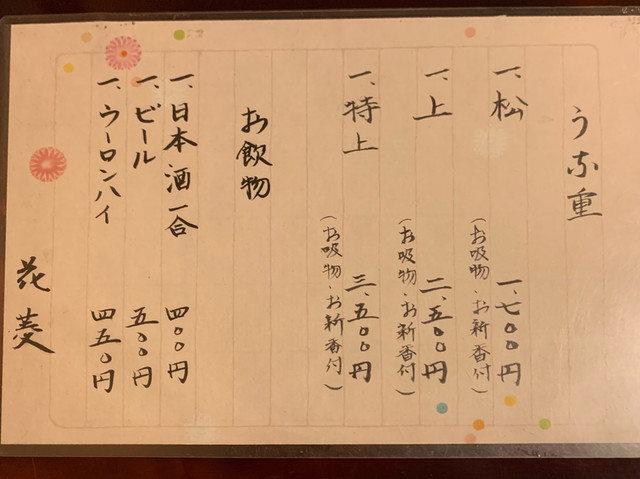 うな重
一、松 一、七〇〇円
(お吸物・お新香付)
一、上 二、五〇〇円
(お吸物・お新香付)
一、特上 三、五〇〇円
(お吸物・お新香付)
お飲物
一、日本酒一合 四〇〇円
一、ビール 五〇〇円
一、ウーロンハイ 四五〇円
花菱